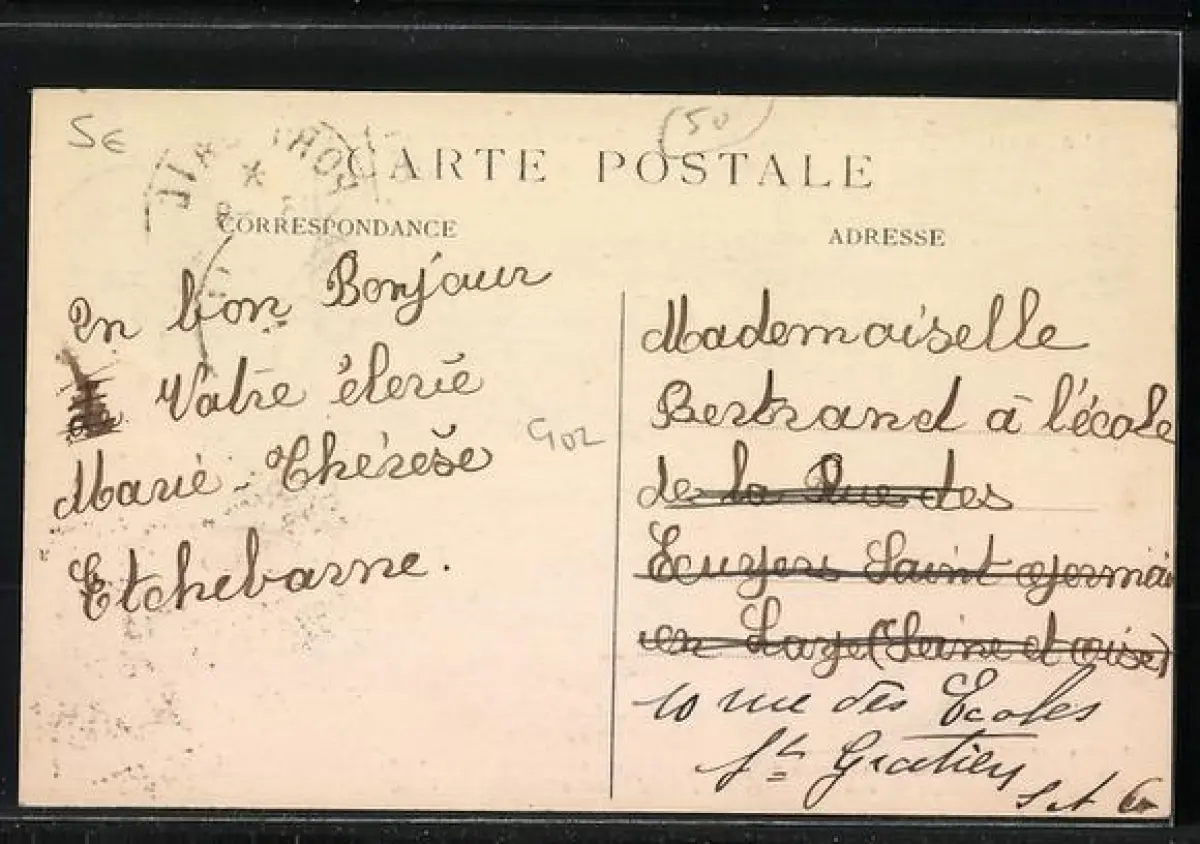 5€
(50)
CARTE POSTALE
CORRESPONDANCE
ADRESSE
en bon Bonjour
Votre éleve
Marie-Thérèse
Etchebarne.
902
Mademoiselle
Bertrand à l'école
de la Rue des
Ecuyers Saint Germai
en Laye (Seine et oise)
10 rue des Ecoles
St Gratien
S et O